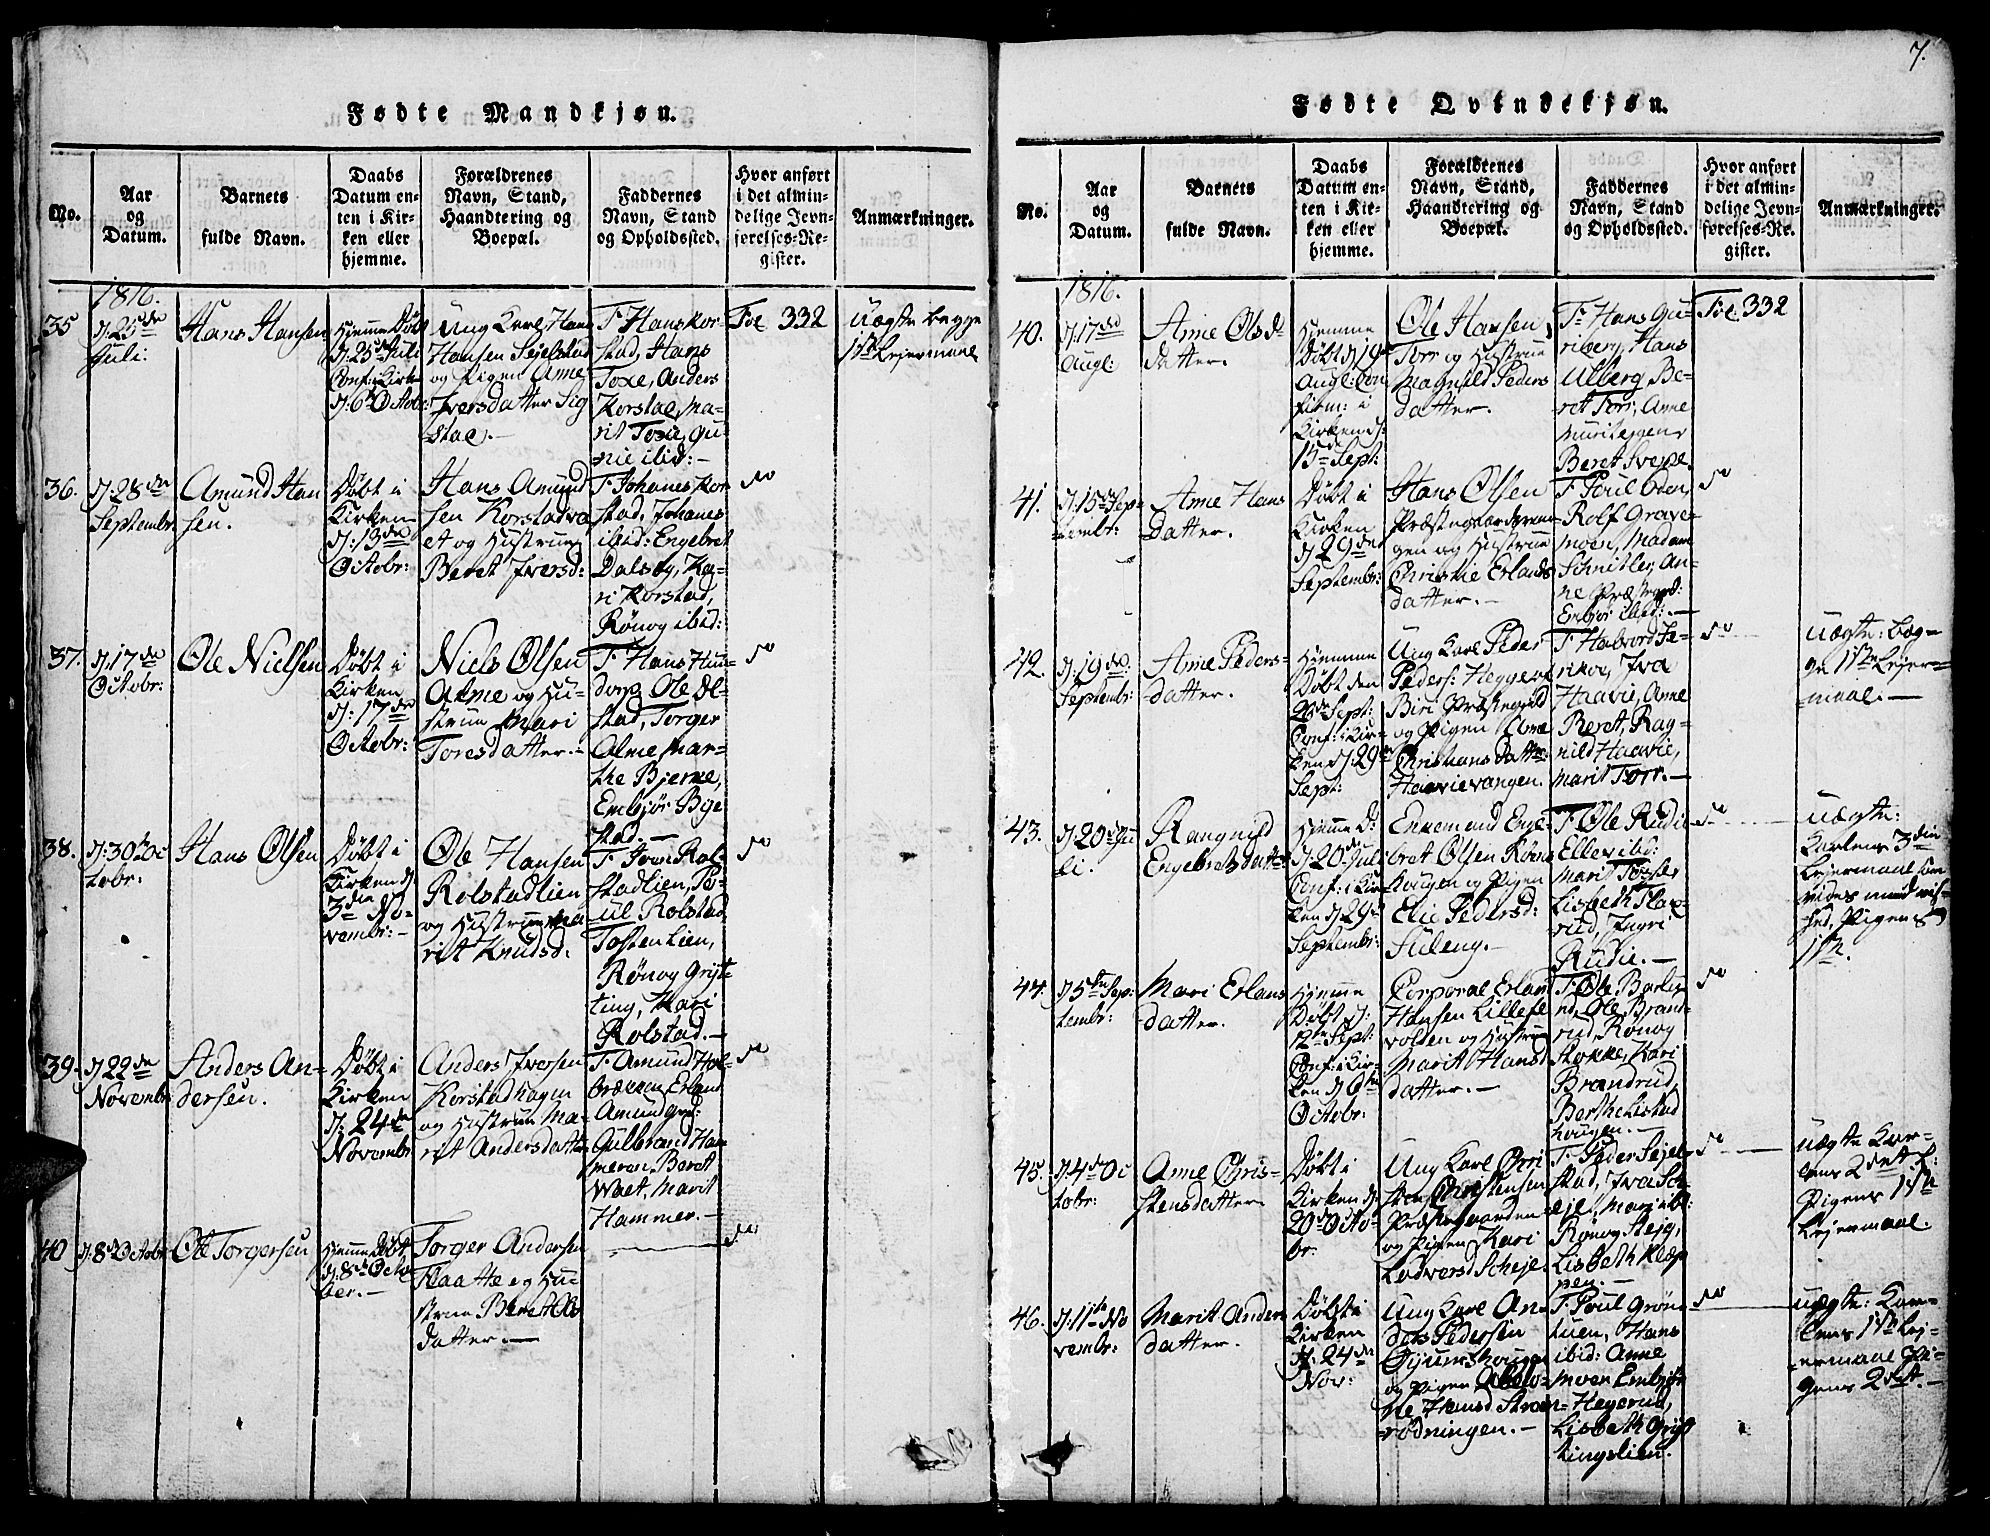 7.
Fødte Mandkjøn.
No.
Aar
og
Datum.
Barnets
fulde Navn.
Daabs
Datum en-
ten i Kir-
ken eller
hjemme.
Forældrenes
Navn, Stand,
Haandtering og
Boepæl.
Faddernes
Navn, Stand
og Opholdssted.
Hvor anført
i det almin-
delige Jevn-
førelses-Re-
gister.
Anmærkninger.
1816.
35
d: 25de
Juli:
Hans Hansen
Hjemme Døbt
d: 25de Juli
Conf: i Kirk
d: 6te Octobr:
Ung Karl Hans
Hansen Sejelstad
og Pigen Anne
Iversdatter Sig
stad.-
F: Hans Kor-
stad, Hans
Toxe, Anders
Korstad, Ma-
rit Toxe, Gu-
nie ibid:-
Fol 332
Uægte begge
1ste Lejermaal
36.
d: 28de
Septembr:
Amund Han
sen.
Døbt i
Kirken
d: 13de
Octobr:
Hans Amund
sen Korstadva
et og Hustrue
Beret Iversd:
F: Johanes Kor
stad, Johanes
ibid: Engebret
Dalsøg, Ka-
ri Korstad,
Rønog ibid:
do
37.
d: 17de
Octobr:
Ole Nielsen
Døbt i
Kirken
d: 17de
Octobr:
Niels Olsen
Alme og Hu-
strue Mari
Toresdatter.-
F: Hans Hun-
dorp, Ole Ol-
stad, Torger
Alme, Mar-
the Bjerne,
Embjør Byge
stad:-
do
38.
d: 30te Oc
tobr:
Hans Olsen
Døbt i
Kirken d
3die No-
vembr:-
Ole Hansen
Rolstadlien
og Hustrue Ma
rit Knudsd:
F: Iver Rol-
stadlien, Po-
ul Rolstad,
Tosten Lien,
Rønog Gryt-
ting, Kari
Rolstad.-
do
39.
d 22de
Novembr
Anders An-
dersen.
Døbt i
Kirken
d: 24de
Novembr
Anders Iversen
Korstadhagen
og Hustrue Ma-
rit Andersdatter
F: Amund Hol-
brækken, Erland
Amund
Gulbrand Ham
meren, Beret
Waet, Marit
Hammer.-
do
40
d: 8de Octobr
Ole Torgersen
Hjemme Døbt
d: 8de Octo
ber.-
Torger Andersen
Flaatte og Hu-
strue Beret Ols
datter.-
do
Fødte Qvindekjøn.
No.
Aar
og
Datum.
Barnets
fulde Navn.
Daabs
Datum en-
ten i Kir-
ken eller
hjemme.
Forældrenes
Navn, Stand,
Haandtering og
Boepæl.
Faddernes
Navn, Stand
og Opholdssted.
Hvor anført
i det almin-
delige Jevn-
førelses-Re-
gister.
Anmærkninger.
1816.
40.
d: 17de
Augl:
Anne Ols
datter.
Hjemme
Døbt d 19de
Augl: Con
firm: i
Kirken d:
15de Sept:
Ole Hansen
Torr og Hustrue
Magnild Peders
datter.
F: Hans Gu-
riberg, Hans
Ulberg, Be-
ret Torr, Anne
Beret Svepe.
Fol. 332
41.
d: 15de Sep-
tembr:
Anne Hans
datter.
Døbt i
Kirken
d 29de
Septembr:
Hans Olsen
Præstegaardsvan
gen og Hustrue
Christie Erlands
datter.-
F: Poul Oden,
Rolf Grave-
moen, Madam
Schnitler, An-
ne Præstegrd:
Embjør ibid:-
do
42.
d: 19de
Septembr:
Anne Peders-
datter.
Hjemme
Døbt den
Sept:
Conf: i Kir-
ken d: 29de
Sept:
Ung Karl Peder
Peders: Heggers
Biri Præstegield
og Pigen Anne
Christiansdatter
Haavievangen.
F: Halvord
Iva
Haavie, Anne
Beret, Rag-
nild Haavie,
Marit Torr.-
do
Uægte: beg-
ge 1ste Lejer-
maal.-
43.
d: 20de Ju
li.
Rangnild
Engebretsdatter
Hjemme D:
d: 20de Juli
Conf: i Kir
ken d 29de
Septembr:
Enkemand Enge-
bret Olsen Rønne
hougen og Pigen
Elie Pedersd:
Fuleng.-
F: Ole Rudie
Ellev ibid:
Marit Toxler
Lisbeth Flax-
rud, Ingri
Rudie.-
do
Uægte:
Karlens 3die
Lejermaal som
vides med vis-
hed, Pigens
1ste.
44.
d 5te Sep:
tembr:
Mari Erlans
datter.
Hjemme
Døbt d:
12te Sept:
Conf: i Kir-
ken d 6te
Octobr:
Corporal Erlan
Hansen Lillefe
volden og Hustrue
Marit Hans
datter.-
F: Ole Barlin
Ole Brand-
rud, Rønog
Stokke, Kari
Brandrud,
Berthe Listad
hougen.-
do
45.
d: 4de Oc
tobr:
Anne Chris-
tensdatter
Døbt i
Kirken d:
20de Octo-
br:
Ung Karl Chri
sten Christensen
Præstegaarden
og Pigen Kari
Lodversd Scheje
F: Peder Sejel-
stad, Iva Sch-
eje, Mari ibid:
Rønog Steig,
Lisbeth Klep
pen.-
do
Uægte Kar-
lens 2det L:
Pigens 1ste
Lejermaal.
46.
d: 11te No
vembr:
Marit Anders
datter.
Døbt i
Kirken
d: 24de
Nov:
Ung Karl An-
ders Pedersen
og Pigen
Hansd Strøm-
rødningen.-
F: Poul Grøn-
tuen, Hans
ibid: Anne
Moen, Embjør
Hegerud,
Lisbeth Gryt
tingslien.
do
Uægte: Kar-
lens 1ste Lej-
ermaal Pi-
gens 2det.-